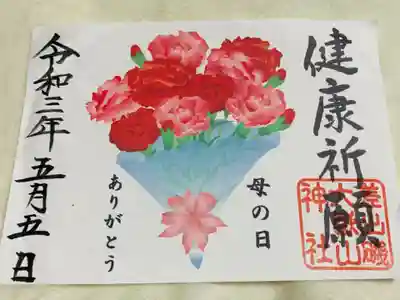 健康祈願
母の日
ありがとう
令和三年五月五日
神社